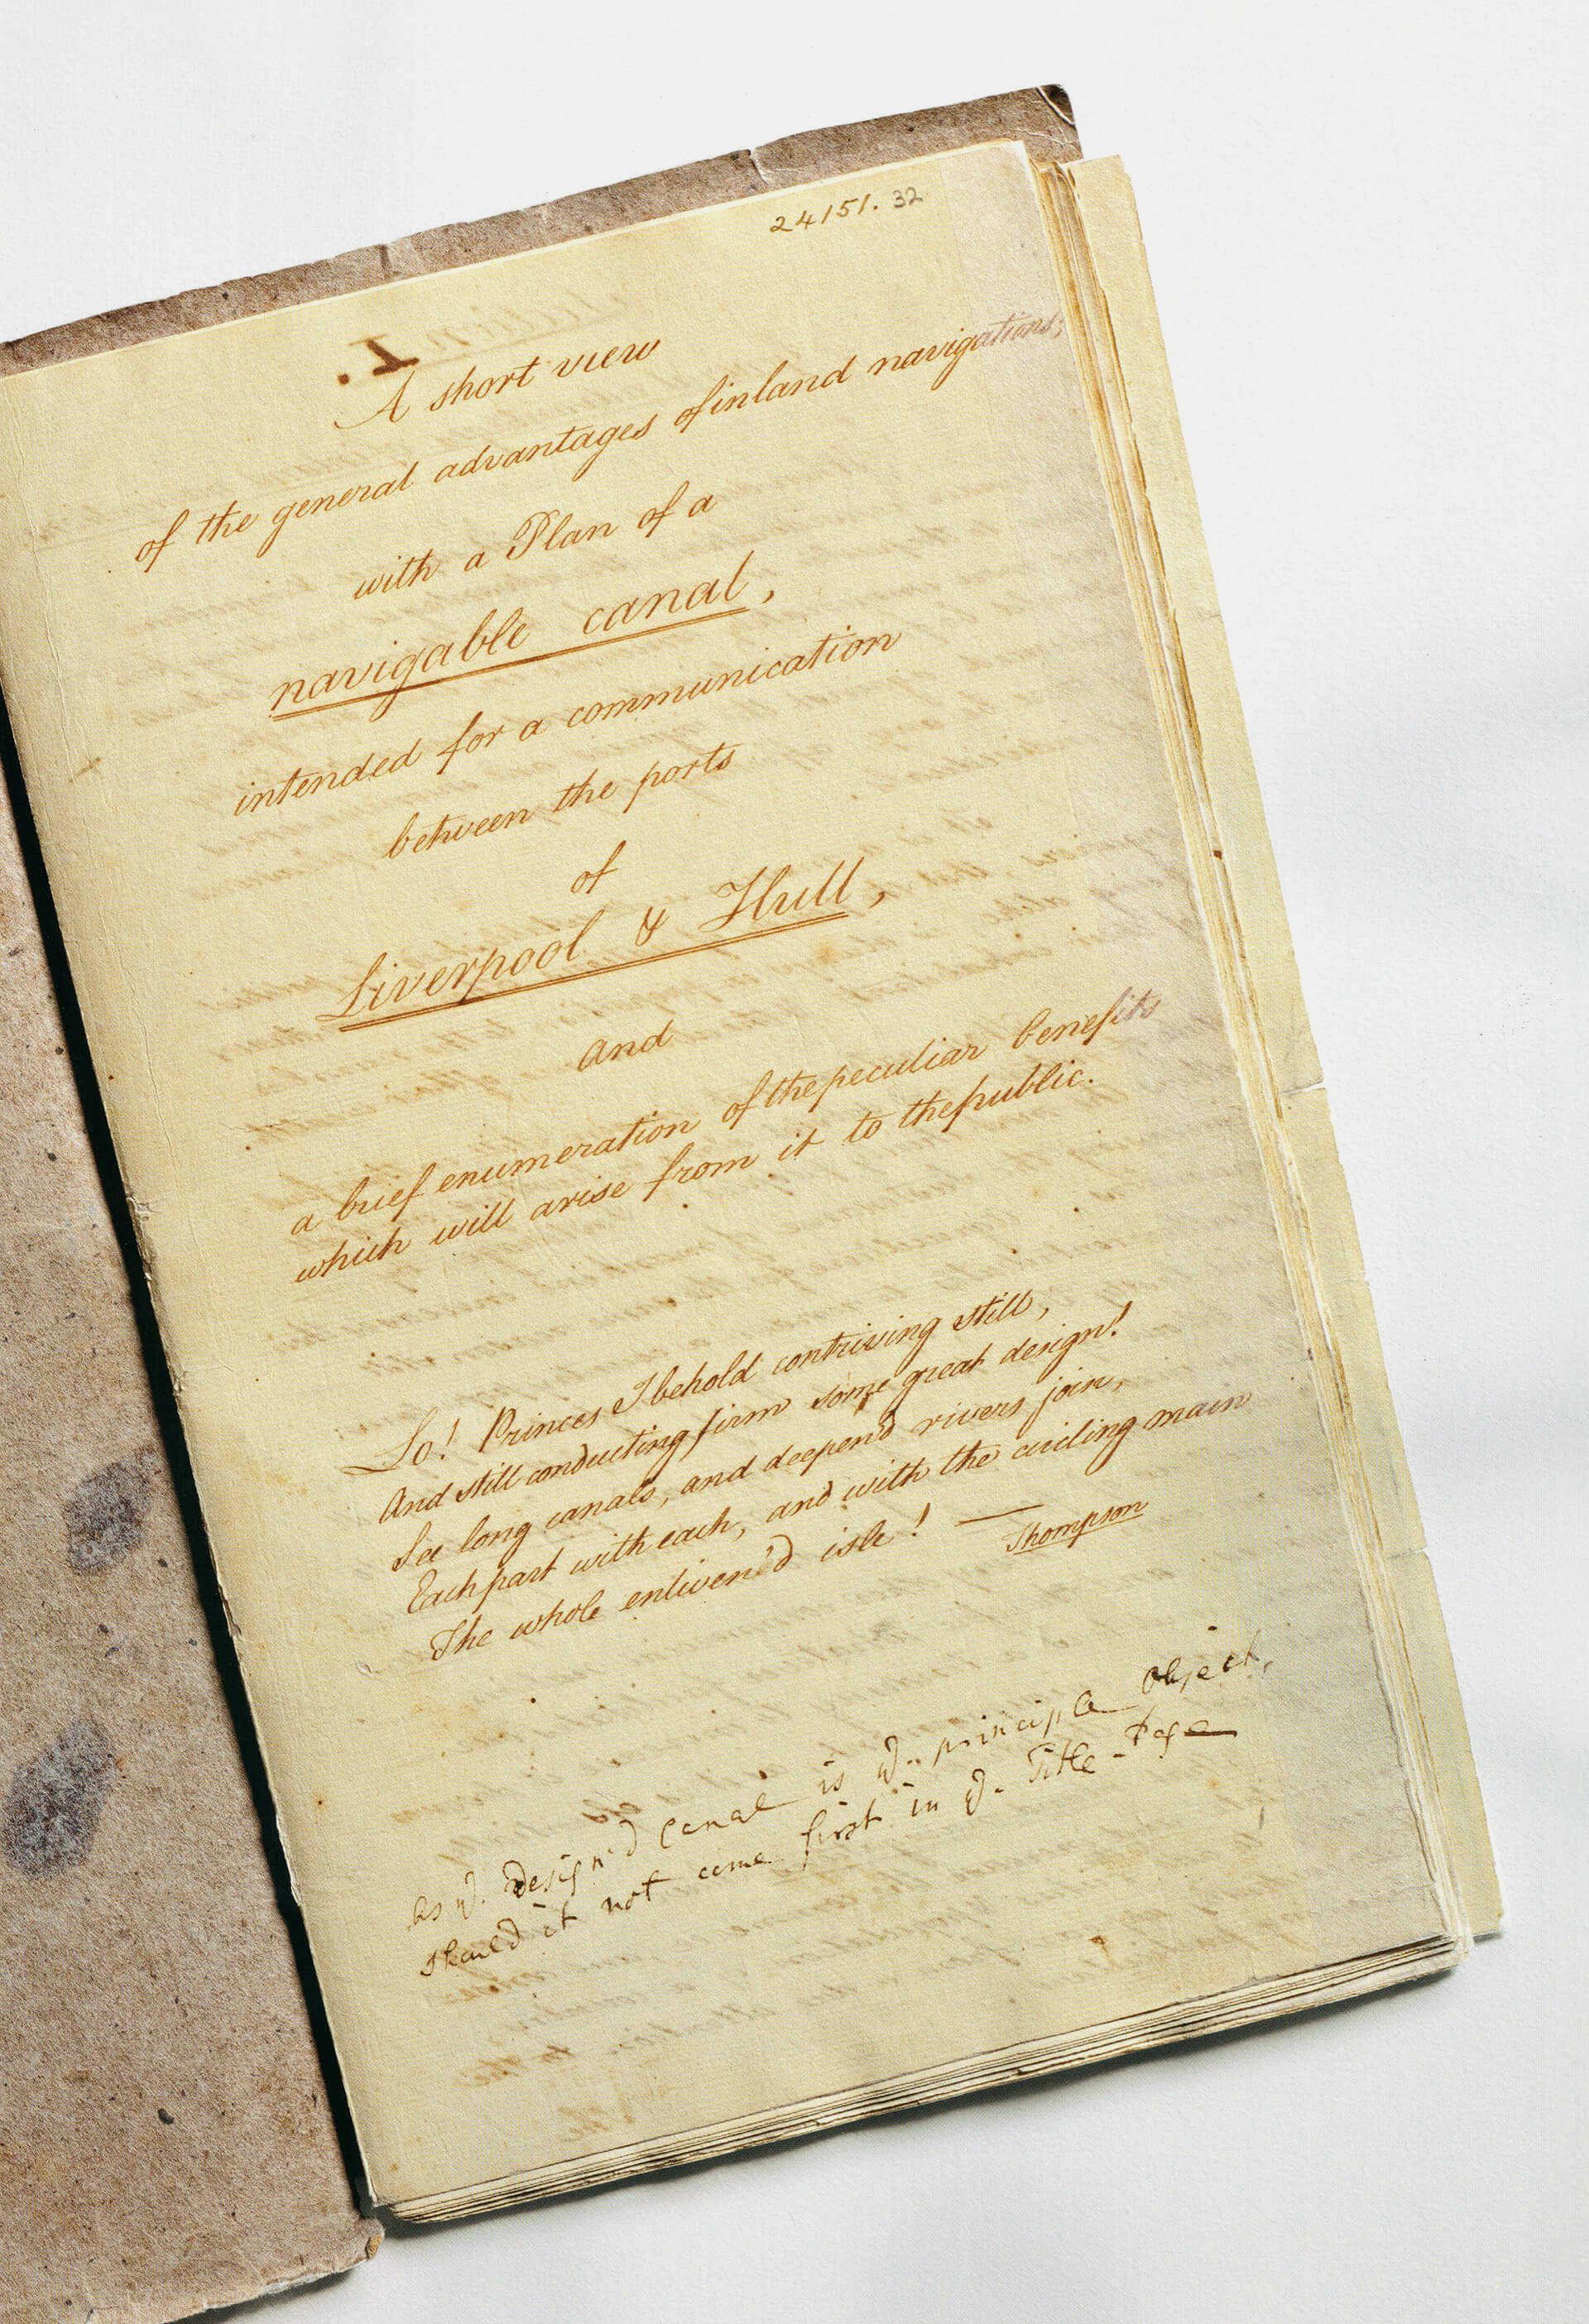 24151. 32
A short view
of the general advantages of inland navigations;
with a Plan of a
navigable canal,
intended for a communication
between the ports
of
Liverpool & Hull,
and
a brief enumeration of the peculiar benefits
which will arise from it to the public.
Lo! Princes I behold contriving still,
And still conducting firm some great design!
See long canals, and deepend rivers join,
Each part with each, and with the circling main
The whole enliven'd isle! —
Thompson
as ye. design'd canal is ye. principle object,
should it not come first in ye. Title-Page